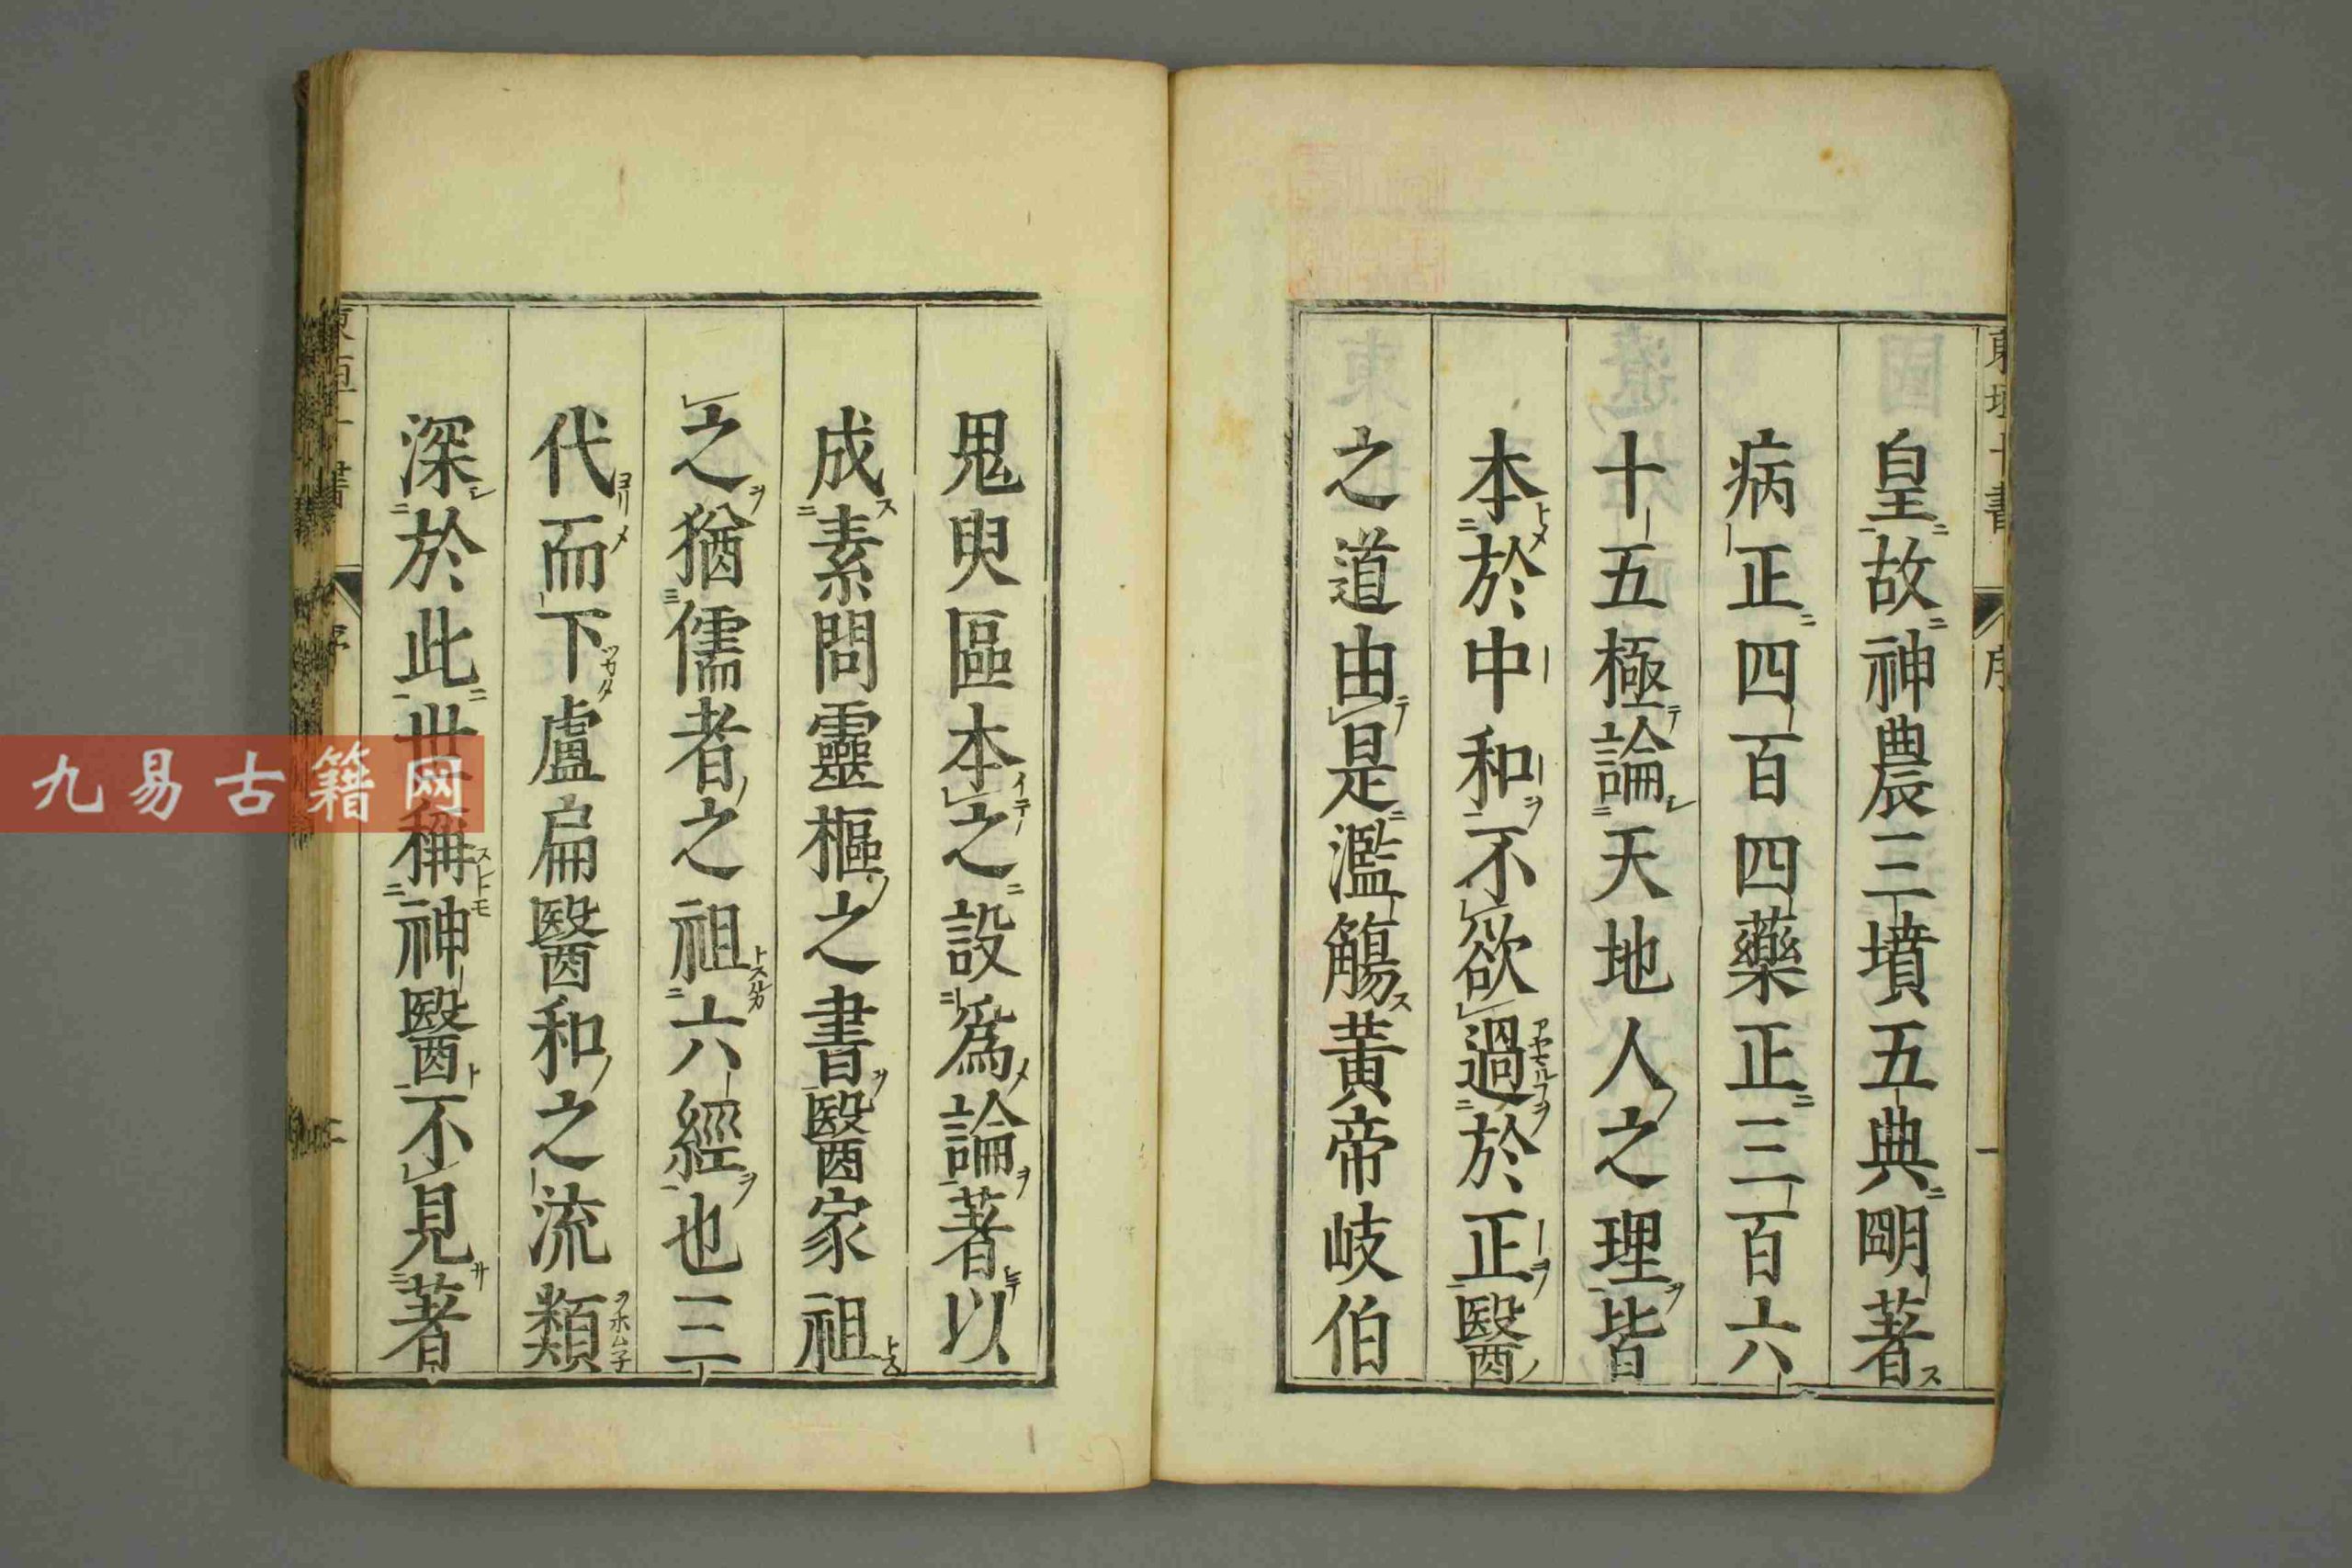 皇故神農三墳五典明著
病正四百四藥正三百六
十五極論天地人之理皆
本於中和不欲過於正醫
之道由是濫觴黃帝岐伯
鬼臾區本之設爲論著以
成素問靈樞之書醫家祖
之猶儒者之祖六經也三
代而下盧扁醫和之流類
深於此世稱神醫不見著
東垣十書
序
九易古籍网